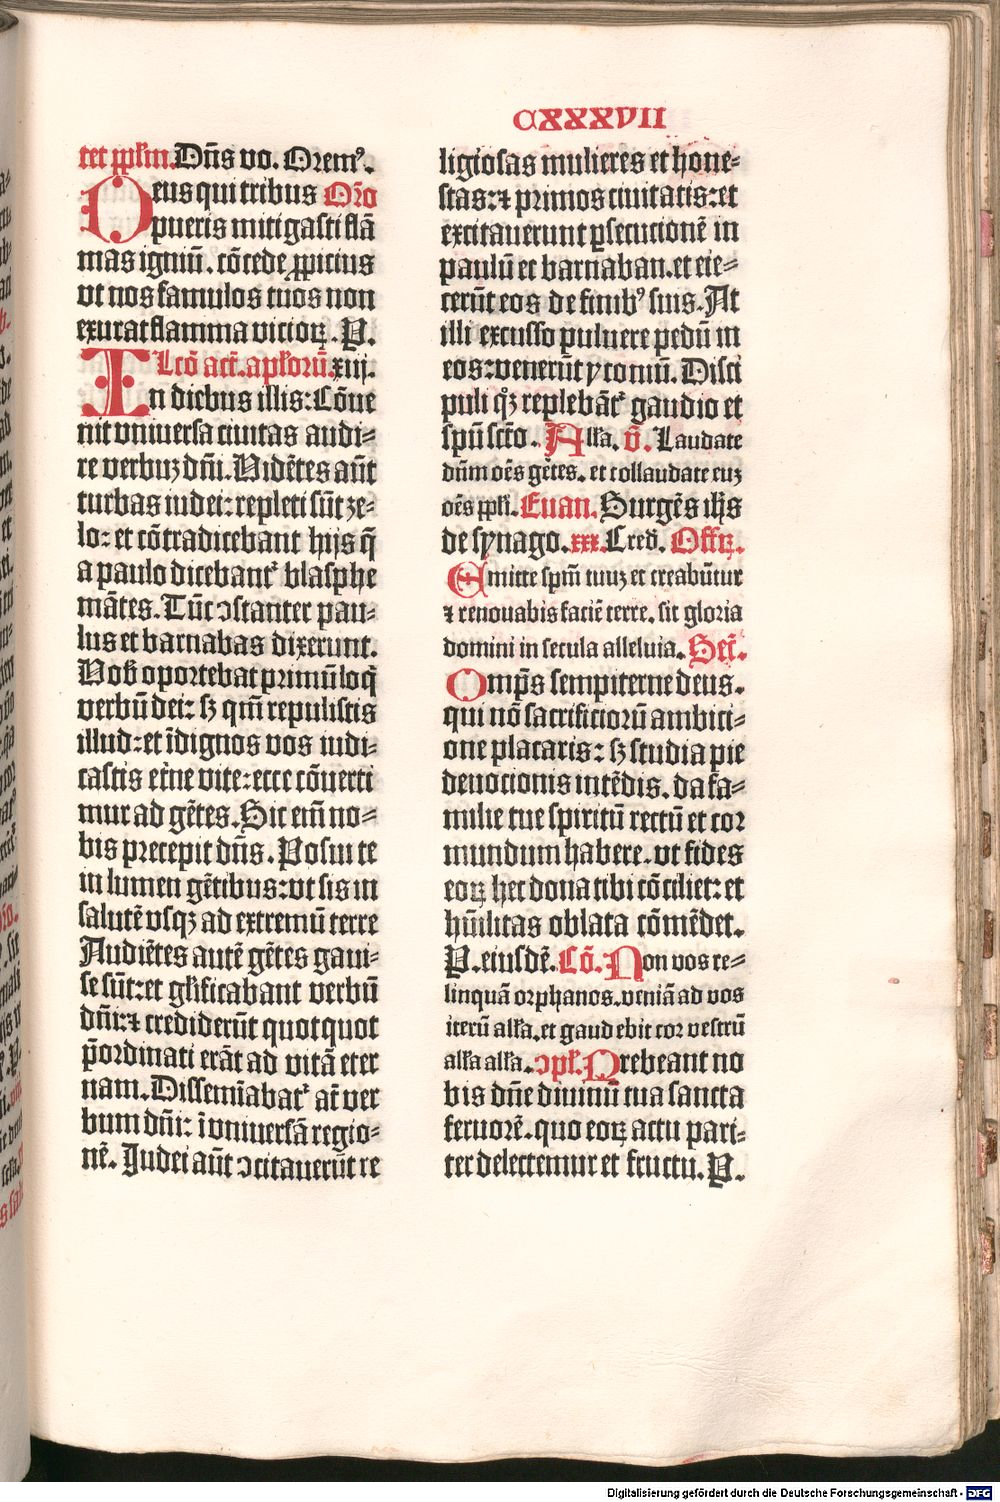 CXXXVII
tet ppl̄m. Dn̄s vo. Orem⁹.
Deus qui tribus Or̄o
pueris mitigasti flā
mas igniū. cōcede ꝓpicius
vt nos famulos tuos non
exurat flamma vicioꝝ. P.
Lcō act̄. apl̄orū. xiij.
In diebus illis: Cōue
nit vniuersa ciuitas audi⸗
re verbuꝫ dn̄i. Vidētes aūt
turbas iudei: repleti sūt ze⸗
lo: et cōtradicebant hijs q̄
a paulo dicebantᷣ blasphe
mātes. Tūc ↄstanter pau⸗
lus et barnabas dixerunt.
Vob̄ oportebat primū loq̄
verbū dei: sꝫ qm̄ repulistis
illud: et īdignos vos iudi⸗
castis et̄ne vite: ecce cōuerti
mur ad gētes. Sic eim̄ no⸗
bis precepit dn̄s. Posui te
in lumen gētibus: vt sis in
salutē vsqꝫ ad extremū terre
Audiētes autē gētes gaui⸗
se sūt: et gl̄ificabant verbū
dn̄i: ⁊ crediderūt quotquot
p̄ordinati erāt ad vitā eter
nam. Dissemīabatᷣ aūt ver
bum dn̄i: ī vniuersā regio⸗
nē. Judei aūt ↄcitauerūt re
ligiosas mulieres et hone⸗
stas: ⁊ primos ciuitatis: et
excitauerunt ꝑsecucionē in
paulū et barnaban. et eie⸗
cerūt eos de finib⁹ suis. At
illi excusso puluere pedū in
eos: venerūt yconiū. Disci
puli qͦꝫ replebātᷣ gaudio et
spū sct̄o. All̄a. v̄. Laudate
dūm oēs gētes. et collaudate euꝫ
oēs ppl̄i. Euan. Surgēs ih̄s
de synago. xxx. Cred. Offꝝ.
Emitte spm̄ tuuꝫ et creabūtur
⁊ renouabis faciē terre. sit gloria
domini in secula alleluia. Sec̄.
Omp̄s sempiterne deus.
qui nō sacrificiorū ambici⸗
one placaris: sꝫ studia pie
deuocionis intēdis. da fa⸗
milie tue spiritū rectū et cor
mundum habere. vt fides
eoꝝ hec dona tibi cōciliet: et
hūilitas oblata cōmēdet.
P. eiusdē. Cō. Non vos re⸗
linquā orphanos. veniā ad vos
iterū all̄a. et gaudebit cor vestrū
all̄a all̄a. ↄpl̄. Prebeant no
bis dn̄e diuinū tua sancta
feruorē. quo eoꝝ actu pari⸗
ter delectemur et fructu. P.
Digitalisierung gefördert durch die Deutsche Forschungsgemeinschaft - DFG